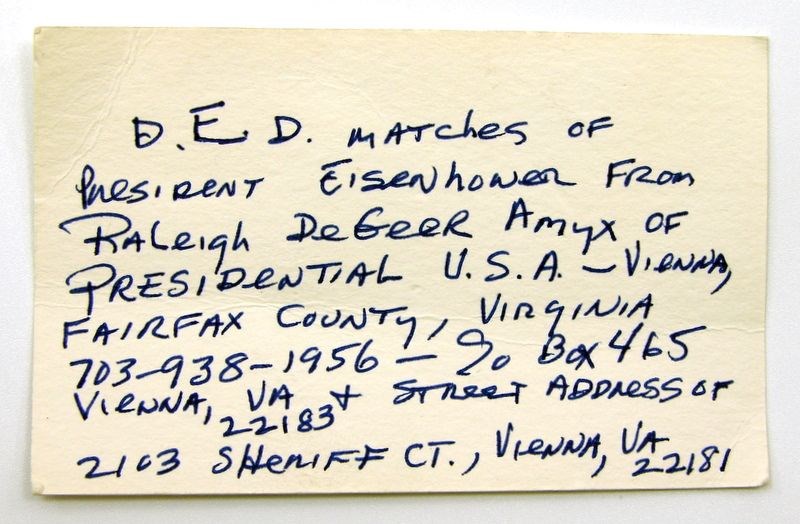 D.E D. MATches OF
PRESIDENT EISENhoWER FROM
RALeigh DeGEER AMYX OF
PRESIDENTIAL U.S.A. – VIENNA,
FAIRFAX COUNTY, VIRGINIA
703-938-1956 – % Box 465
VIENNA, VA + STREET ADDRESS OF
22183
2103 SHERIFF CT., VIENNA, VA
22181